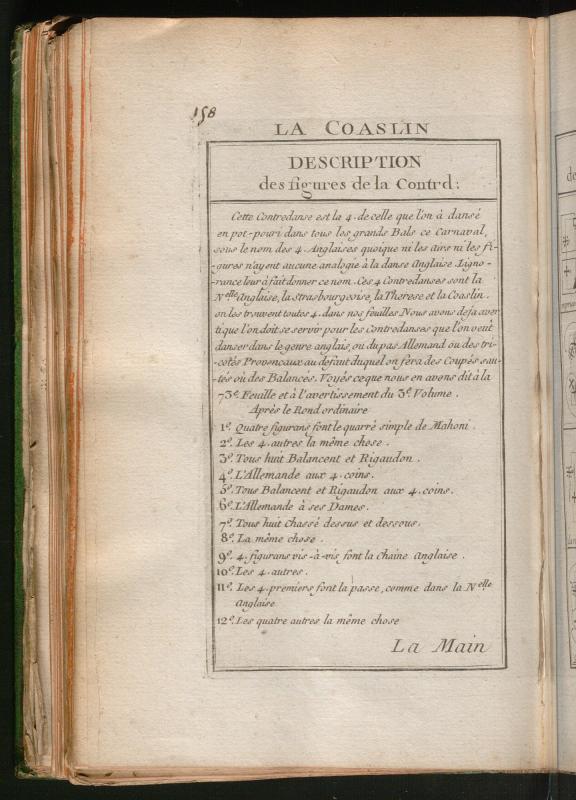 158
LA COASLIN
DESCRIPTION
des figures de la Contrd:
Cette Contredanse est la 4. de celle que l'on à dansé
en pot-pouri dans tous les grands Bals ce Carnaval,
sous le nom des 4. Anglaises quoique ni les airs ni les fi-
-gures n'ayent aucune analogie à la danse Anglaise. L'igno-
-rance leur à fait donner ce nom. Ces 4 Contredanses sont la
Nelle Anglaise, la Strasbourgeoise, la Therese et la Coaslin.
on les trouvent toutes 4. dans nos feuilles Nous avons deja aver
ti que l'on doit se servir pour les Contredanses que l'on veut
danser dans le genre anglais, ou du pas Allemand ou des tri-
-cotés Provencaux au defaut duquel on fera des Coupés sau-
-tés où des Balancés. Voyés ce que nous en avons dit à la
73e. Feuille et à l'avertissement du 3e. Volume.
Après le Rond ordinaire
1o. Quatre figurans font le quarré simple de Mahoni.
2o. Les 4. autres la même chose.
3o. Tous huit Balancent et Rigaudon.
4o. L'Allemande aux 4. coins.
5o. Tous Balancent et Rigaudon aux 4. coins.
6o. L'Allemande à ses Dames.
7o. Tous huit Chassé dessus et dessous.
8o. La même chose.
9o. 4. figurans vis-à-vis font la Chaine Anglaise.
10o. Les 4. autres.
11o. Les 4. premiers font la passe, comme dans la Nelle
Anglaise
12o. Les quatre autres la même chose
La Main